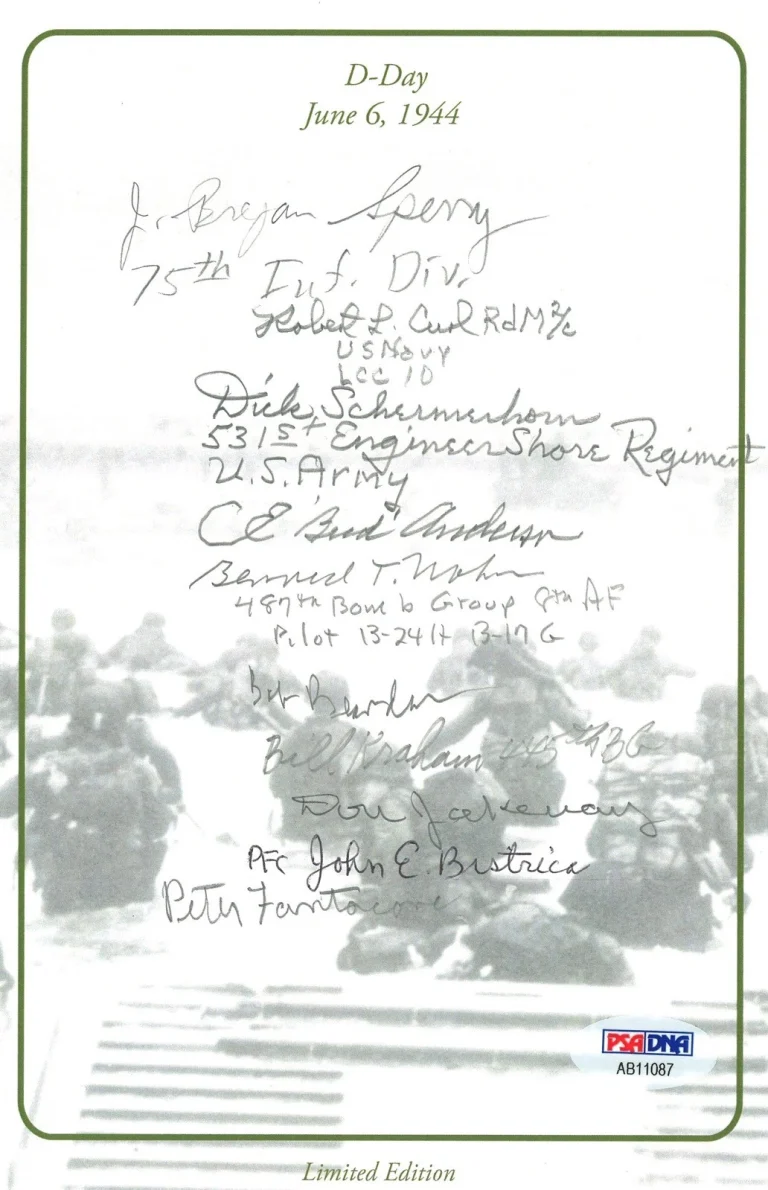 D-Day
June 6, 1944
J. Bryan Sperry
75th Inf. Div.
Robert L. Curl RdM 2/c
US Navy
LCC 10
Dick Schermerhorn
531st Engineer Shore Regiment
U.S. Army
CE "Bud" Anderson
Bernard T. Nolan
487th Bomb Group 8th AF
Pilot B-24H B-17G
Bob Bearden
Bill Kraham 445th BG
Don Jakeway
PFC John E. Bistrica
Peter Fantacone
PSA DNA
AB11087
Limited Edition